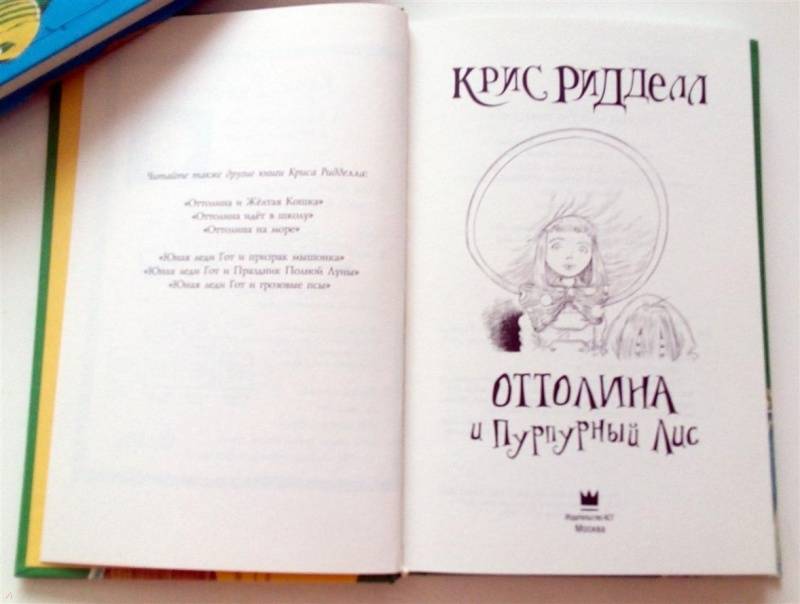 Читайте также другие книги Криса Ридделла:
«Оттолина и Жёлтая Кошка»
«Оттолина идёт в школу»
«Оттолина на море»
«Юная леди Гот и призрак мышонка»
«Юная леди Гот и Праздник Полной Луны»
«Юная леди Гот и грозовые псы»
КРИС РИДДЕЛЛ
ОТТОЛИНА
и ПУРПУРНЫЙ ЛИС
Издательство АСТ
Москва